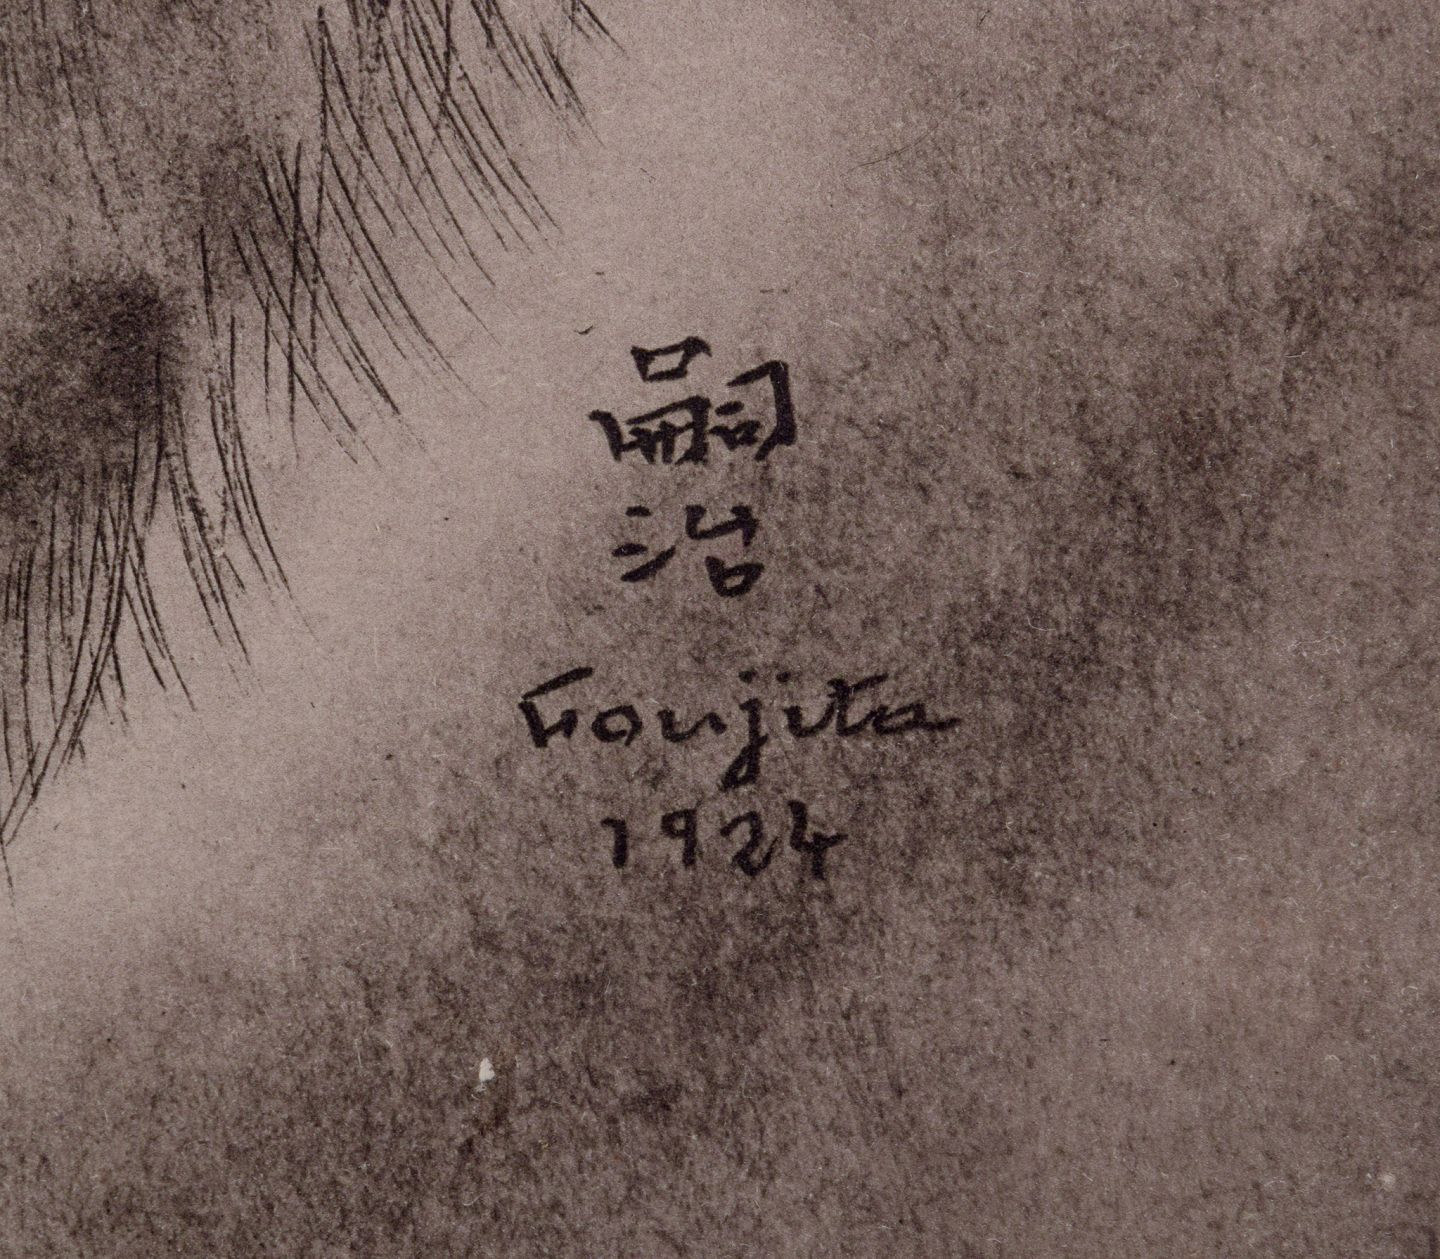 嗣
治
Foujita
1924